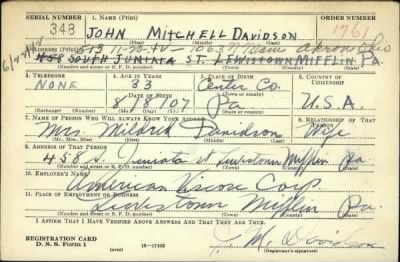 SERIAL NUMBER 1. NAME (Print) ORDER NUMBER
348 JOHN MITCHELL DAVIDSON 1761
(First) (Middle) (Last)
2. ADDRESS (Print) 1063 N Main Akron Ohio
458 SOUTH JUNIATA ST. LEWISTOWN MIFFLIN PA.
(Number and street or R. F. D. number) (Town) (County) (State)
3. TELEPHONE 4. AGE IN YEARS 5. PLACE OF BIRTH 6. COUNTRY OF CITIZENSHIP
NONE 33 Center Co.
(Town or county)
DATE OF BIRTH
8/8/07 Pa U.S.A.
(Mo.) (Day) (Yr.) (State or country)
7. NAME OF PERSON WHO WILL ALWAYS KNOW YOUR ADDRESS 8. RELATIONSHIP OF THAT PERSON
Mrs. Mildred Davidson Wife
(Mr., Mrs., Miss) (First) (Middle) (Last)
9. ADDRESS OF THAT PERSON
458 S. Juniata St Lewistown Mifflin Pa.
(Number and street or R. F. D. number) (Town) (County) (State)
10. EMPLOYER'S NAME
American Viscose Corp
11. PLACE OF EMPLOYMENT OR BUSINESS
Lewistown Mifflin Pa.
(Number and street or R. F. D. number) (Town) (County) (State)
I AFFIRM THAT I HAVE VERIFIED ABOVE ANSWERS AND THAT THEY ARE TRUE.
REGISTRATION CARD
D. S. S. Form 1 (over) 16—17105 M. Davidson
(Registrant's signature)